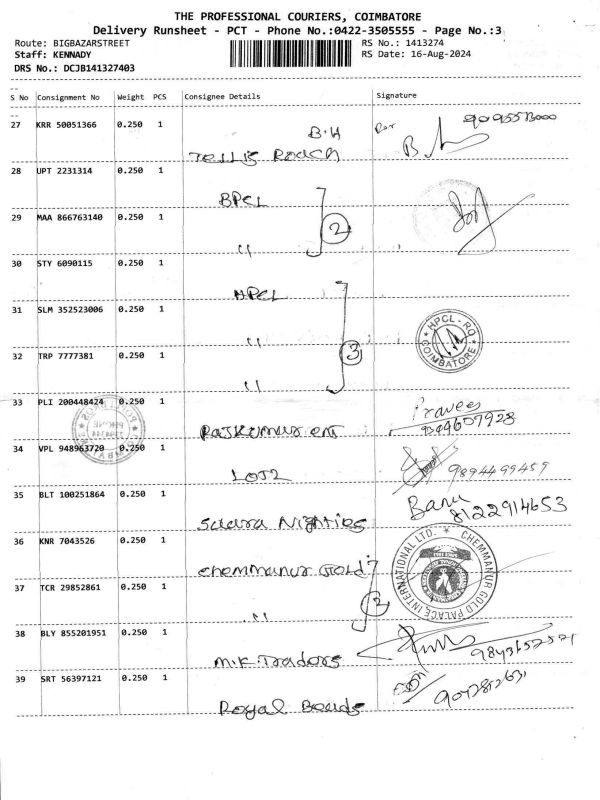 THE PROFESSIONAL COURIERS, COIMBATORE
Delivery Runsheet - PCT - Phone No.:0422-3505555 - Page No.:3
Route: BIGBAZARSTREET RS No.: 1413274
Staff: KENNADY RS Date: 16-Aug-2024
DRS No.: DCJB141327403
S No Consignment No Weight PCS Consignee Details Signature
27 KRR 50051366 0.250 1
B.H
28 UPT 2231314 0.250 1
BPCL
29 MAA 866763140 0.250 1 2
"
30 STY 6090115 0.250 1
HPCL
31 SLM 352523006 0.250 1
" HPCL-RO COIMBATORE
32 TRP 7777381 0.250 1 3
"
33 PLI 200448424 0.250 1 Pravees
Rajkumar ent
34 VPL 948963720 0.250 1
LOTZ 9894499459
35 BLT 100251864 0.250 1 Banu
8122914653
Saara Nighties
36 KNR 7043526 0.250 1
Chemmanur Gold CHEMMANUR GOLD PALACE INTERNATIONAL LTD.
37 TCR 29852861 0.250 1
" 2
38 BLY 855201951 0.250 1
M.K.Traders
39 SRT 56397121 0.250 1
Royal Bonds